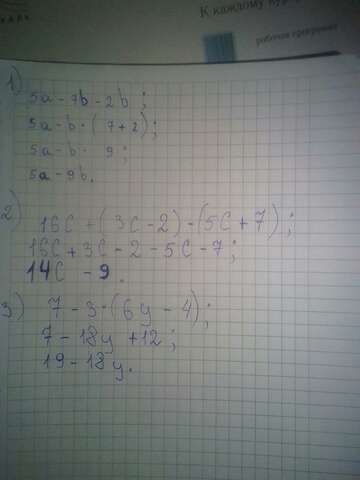 К каждому
рабочая программа
1)
5a - 7b - 2b ;
5a - b · ( 7 + 2 ) ;
5a - b · 9 ;
5a - 9b .
2)
16C + (3C - 2) - (5C + 7) ;
16C + 3C - 2 - 5C - 7 ;
14C - 9 .
3) 7 - 3 · (6y - 4) ;
7 - 18y + 12 ;
19 - 18y .